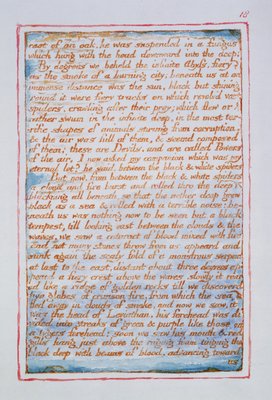 18
root of an oak, he was suspended in a fungus
which hung with the head downward into the deep;
By degrees we beheld the infinite Abyss, fiery
as the smoke of a burning city; beneath us at an
immense distance was the sun, black but shining
round it were fiery tracks on which revolv'd vast
spiders, crawling after their prey; which flew or
rather swum in the infinite deep, in the most ter-
rific shapes of animals sprung from corruption.
& the air was full of them, & seemd composed
of them; these are Devils, and are called Powers
of the air, I now asked my companion which was my
eternal lot? he said, between the black & white spiders
But now, from between the black & white spiders
a cloud and fire burst and rolled thro the deep
blackning all beneath, so that the nether deep grew
black as a sea & rolled with a terrible noise: be-
neath us was nothing now to be seen but a black
tempest, till looking east between the clouds & the
waves, we saw a cataract of blood mixed with fire
and not many stones throw from us appeard and
sunk again the scaly fold of a monstrous serpent
at last to the east, distant about three degrees ap-
peard a fiery crest above the waves slowly it rear-
ed like a ridge of golden rocks till we discoverd
two globes of crimson fire, from which the sea
fled away in clouds of smoke, and now we saw, it
was the head of Leviathan, his forehead was di-
vided into streaks of green & purple like those on
a tygers forehead: soon we saw his mouth & red
gills hang just above the raging foam tinging the
black deep with beams of blood, advancing toward
us